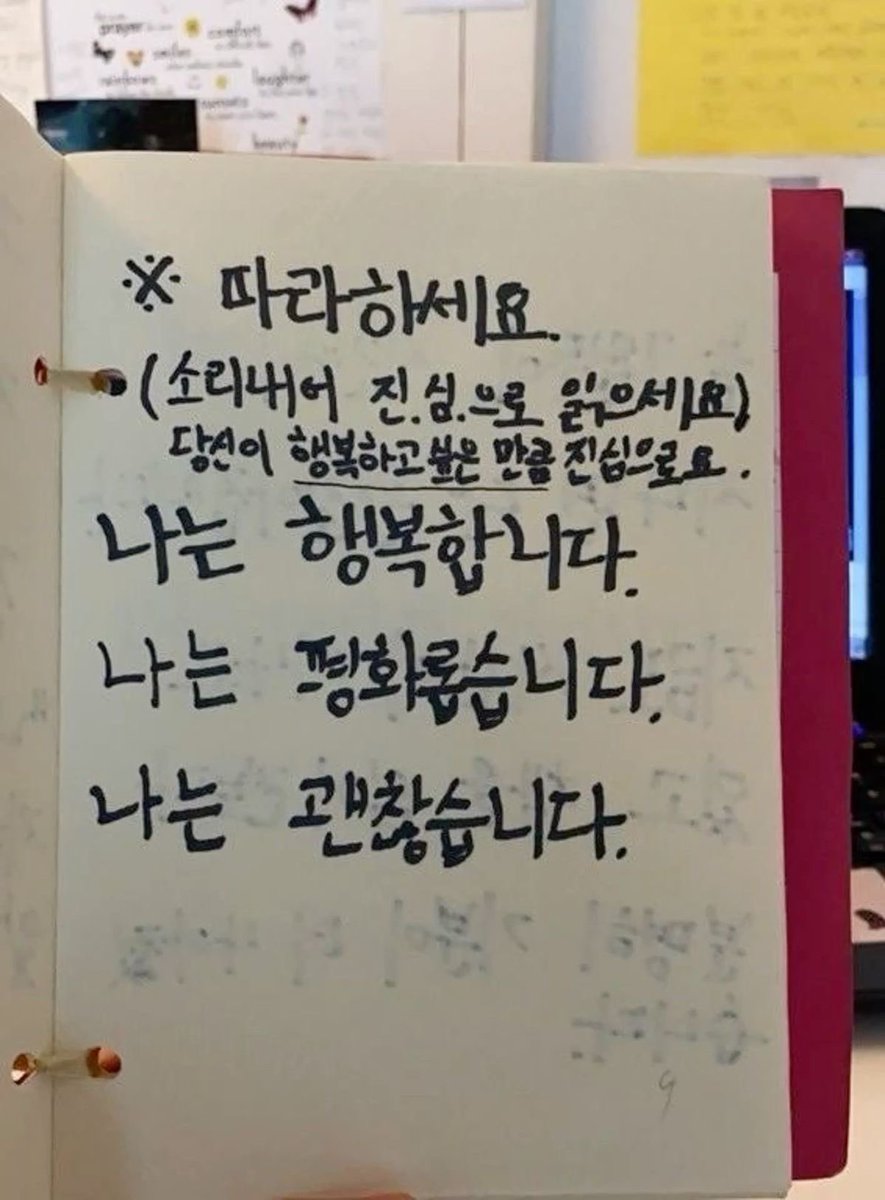 prayer
comfort
smiles
rainbows
laughter
sunsets
beauty
※ 따라하세요.
(소리내어 진.심.으로 읽으세요)
당신이 행복하고 싶은 만큼 진심으로요.
나는 행복합니다.
나는 평화롭습니다.
나는 괜찮습니다.
9